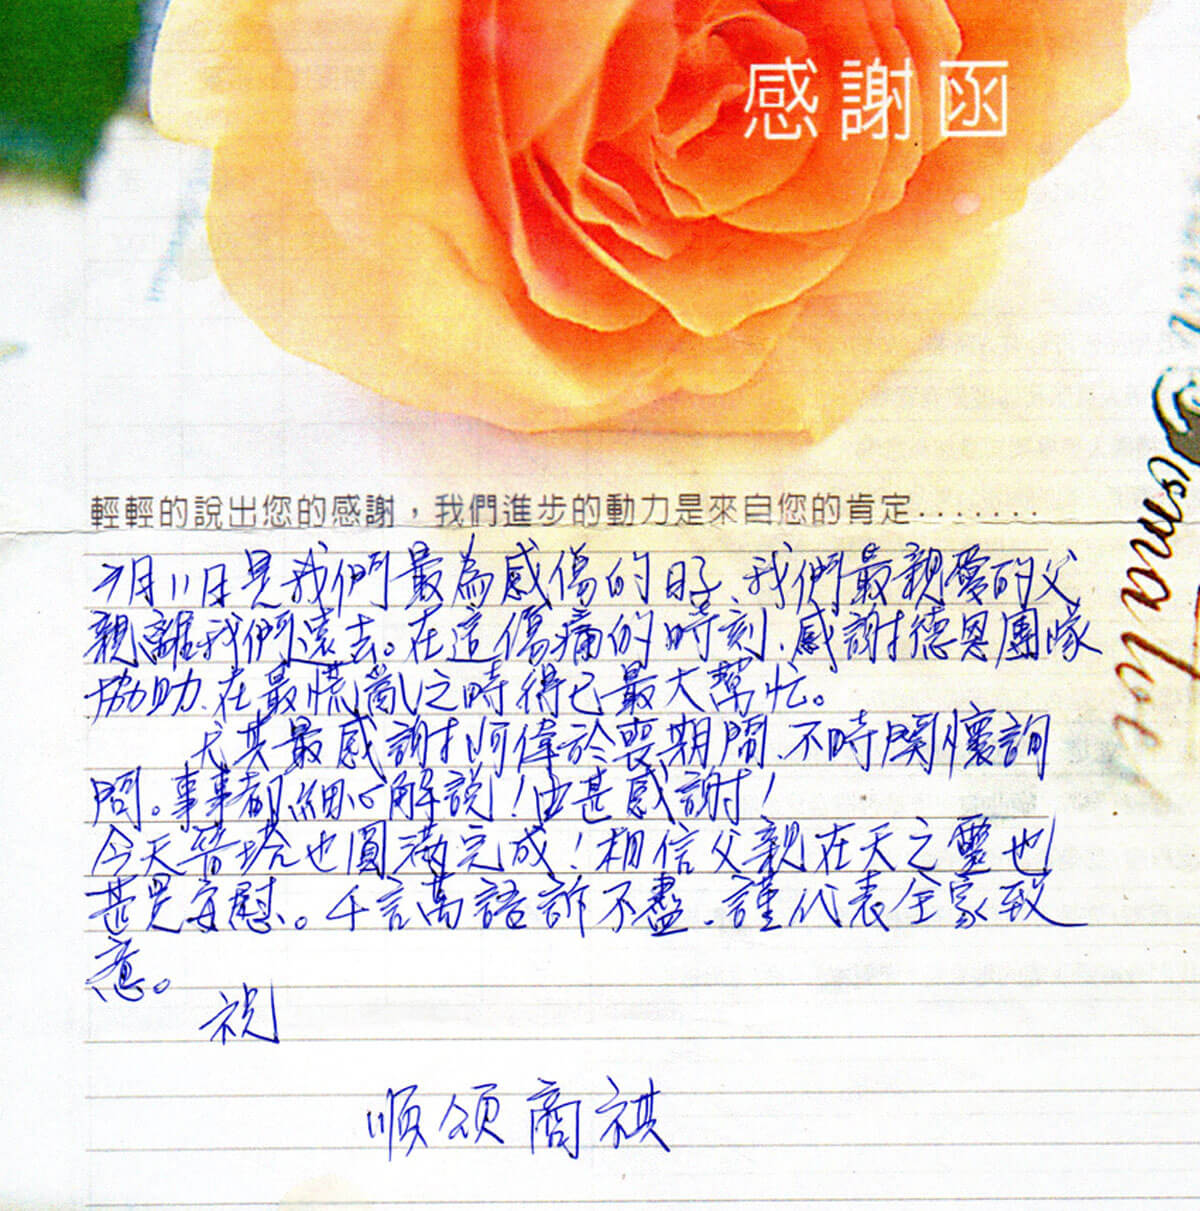 感謝函
輕輕的說出您的感謝，我們進步的動力是來自您的肯定.......
7月11日是我們最為感傷的日子、我們最親愛的父
親離我們遠去。在這傷痛的時刻、感謝德恩團隊
協助、在最慌亂之時得已最大幫忙。
尤其最感謝阿偉於喪期間、不時關懷詢
問。事事都細心解說！由甚感謝！
今天晉塔也圓滿完成！相信父親在天之靈也
甚是安慰。千言萬語訴不盡、謹代表全家致
意。
祝
順頌商祺